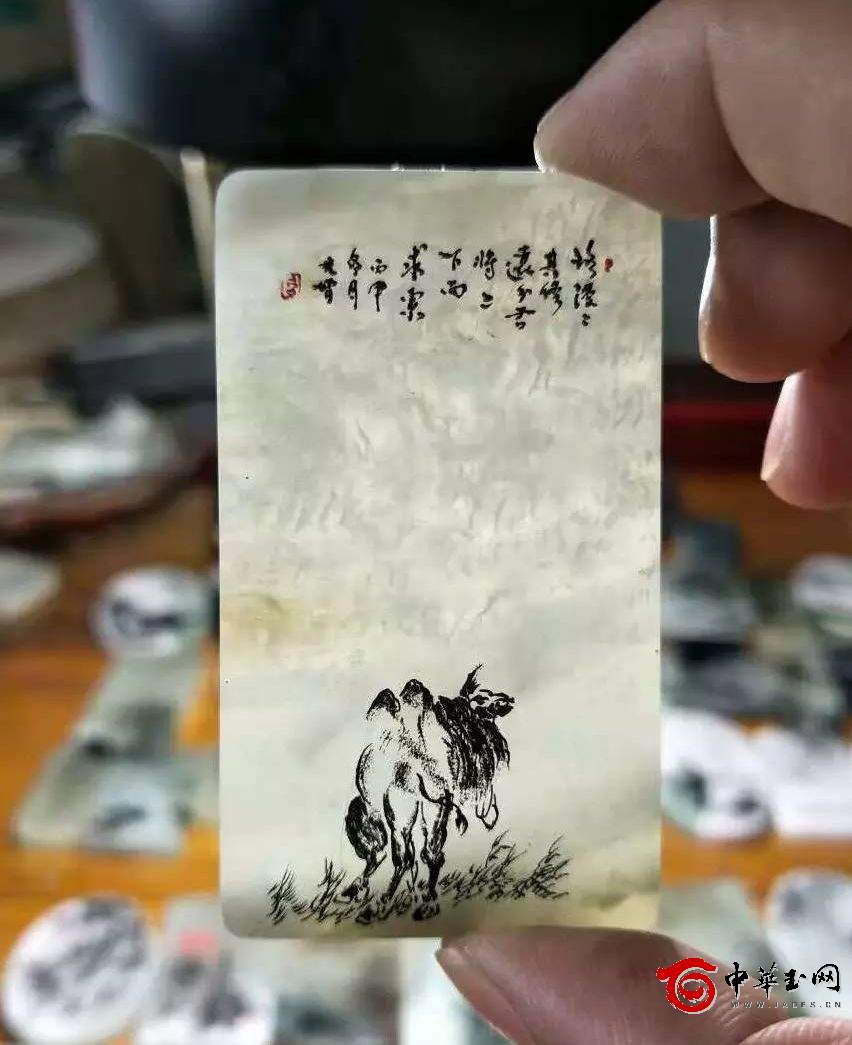 路漫〻
其修
遠兮吾
将上
下而
求索
丙申
冬月
中華玉网
WWW.JADES.CN